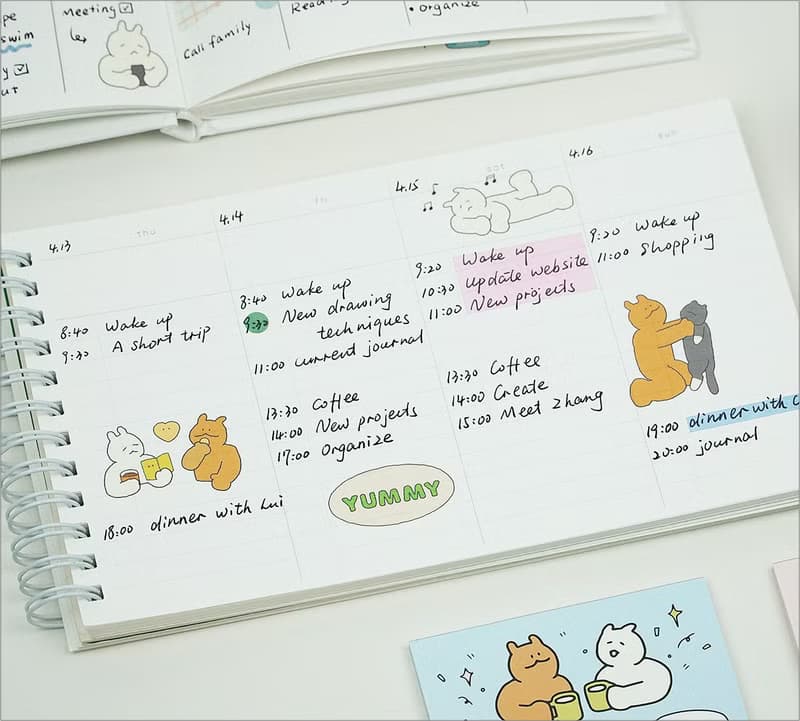 Meeting
swim
call family
• organize
4.13
THU
8:40 Wake up
9:30 A short trip
18:00 dinner with Lui
4.14
8:40 Wake up
9:30 New drawing
techniques
11:00 current journal
13:30 Coffee
14:00 New projects
17:00 Organize
YUMMY
4.15
SAT
9:20 Wake up
10:30 update website
11:00 New projects
13:30 Coffee
14:00 Create
15:00 Meet Zhang
4.16
SUN
9:20 Wake up
11:00 Shopping
19:00 dinner with
20:00 journal